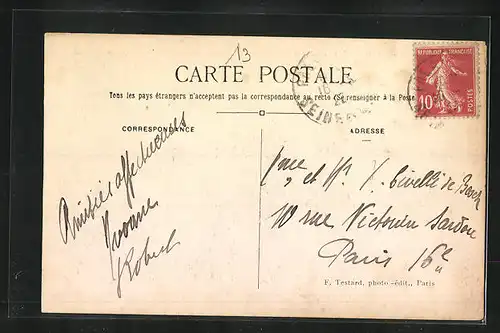 13
CARTE POSTALE
Tous les pays étrangers n'acceptent pas la correspondance au recto (Se renseigner à la Poste
REPUBLIQUE FRANÇAISE
10
POSTES
CORRESPONDANCE
ADRESSE
Amitiés affectueuses
Yvonne
Robert
Mme et Mr
10 rue Victorien Sardou
Paris 16e
F. Testard, photo-édit., Paris